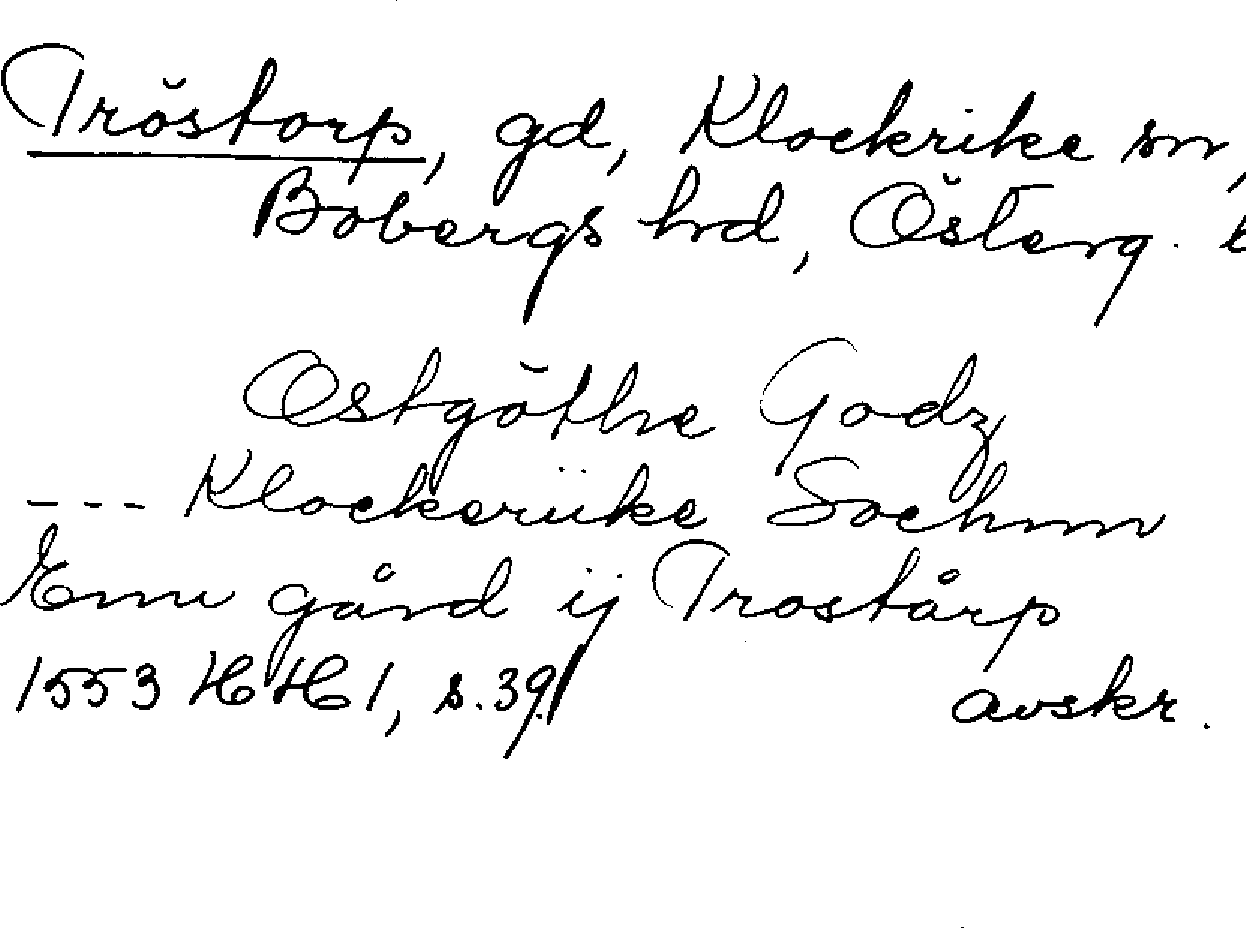 Tröstorp, gd, Klockrike sn,
Bobergs hd, Österg.
Ostgöthe Godz
--- Klockeriike Sochnn
Enn gård ij Trostårp
1553 HH 1, s. 39.
avskr.